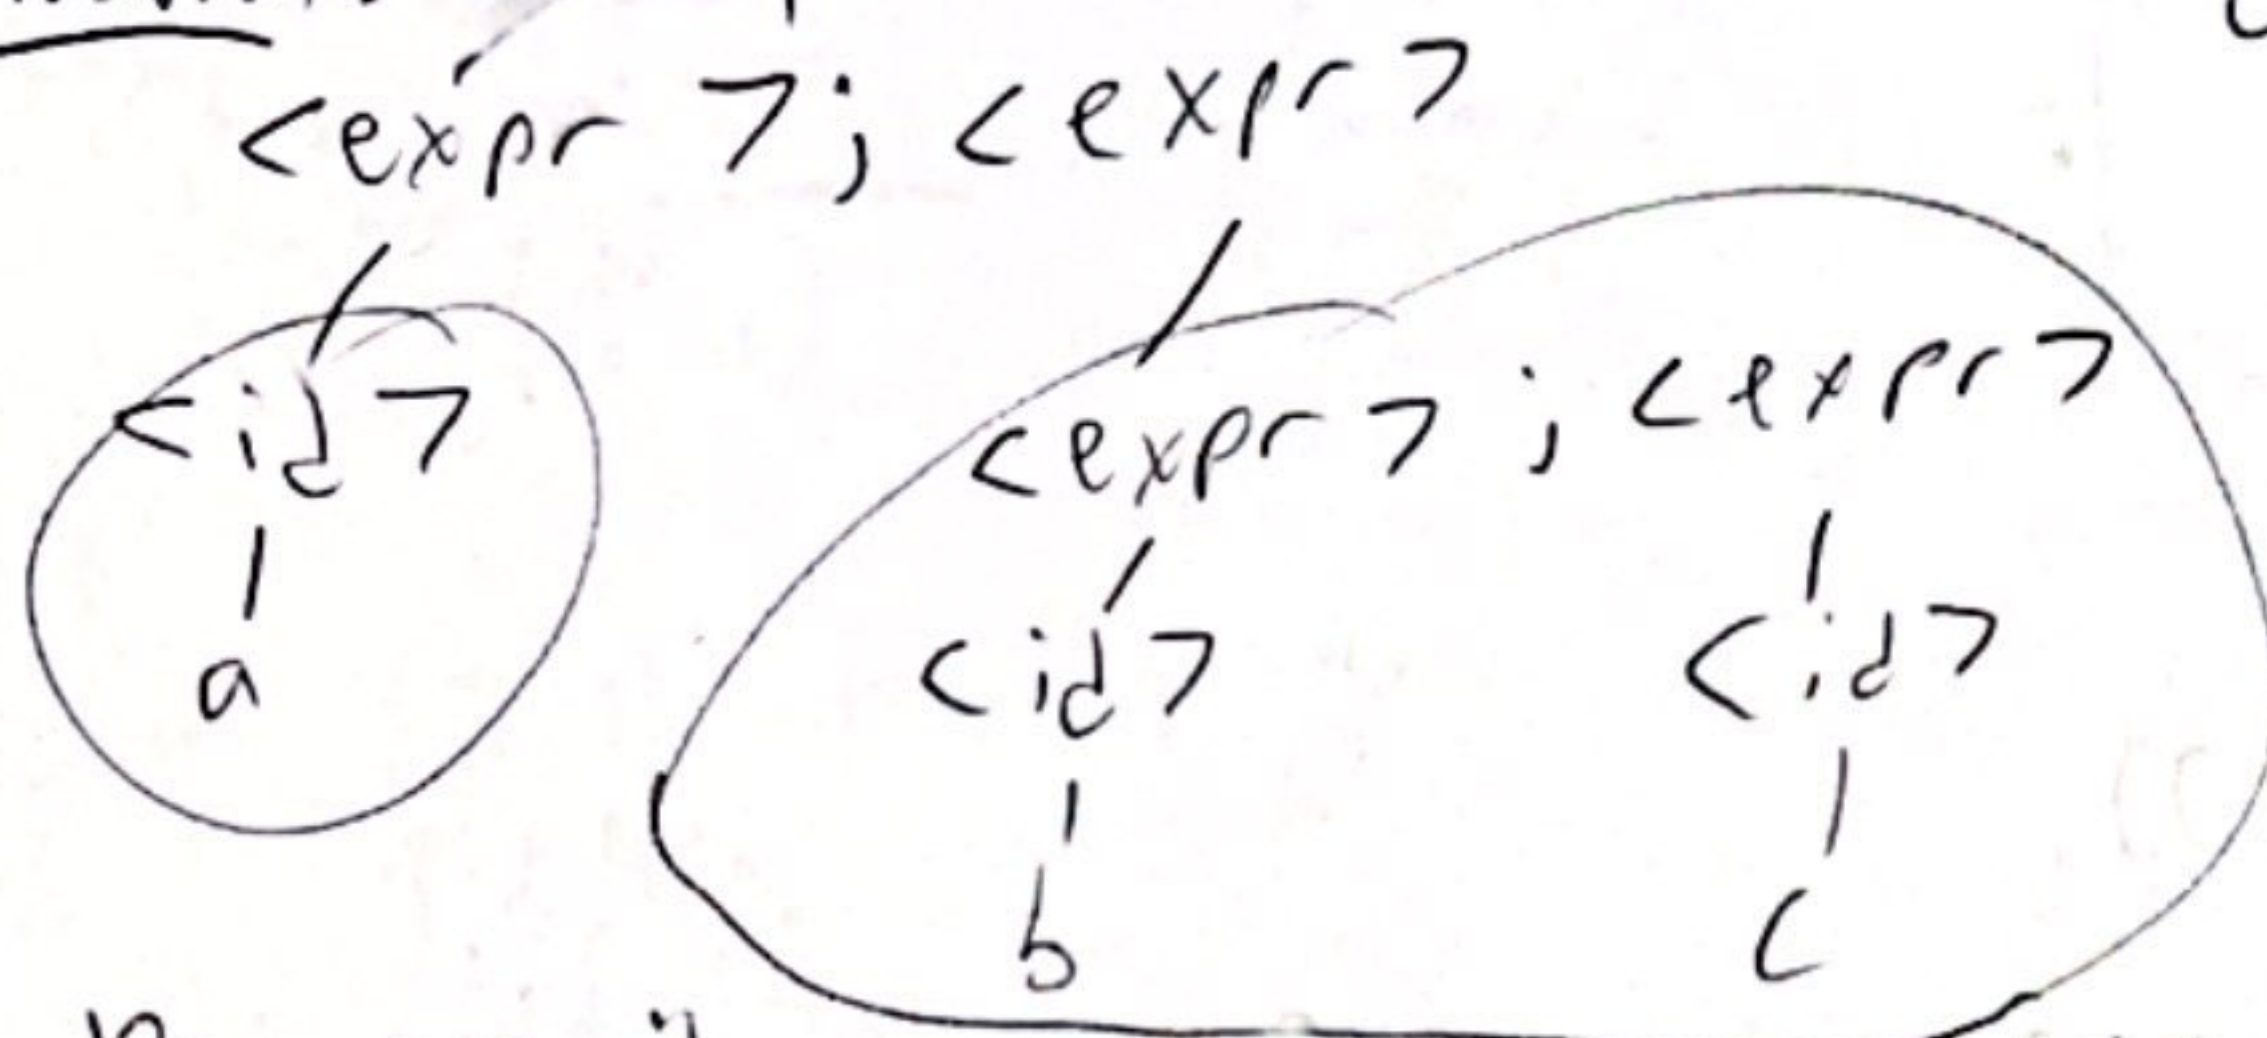 <expr>; <expr>
<id> <expr> ; <expr>
a <id> <id>
b c